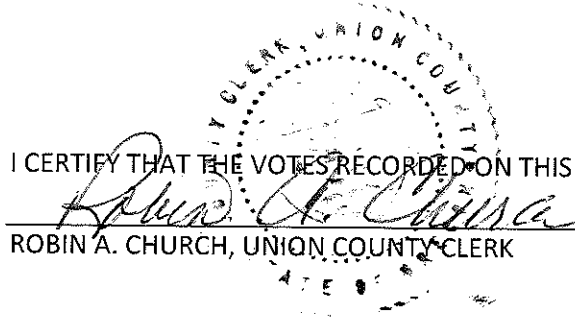 COUNTY CLERK, UNION COUNTY
I CERTIFY THAT THE VOTES RECORDED ON THIS
Robin A. Church
ROBIN A. CHURCH, UNION COUNTY CLERK